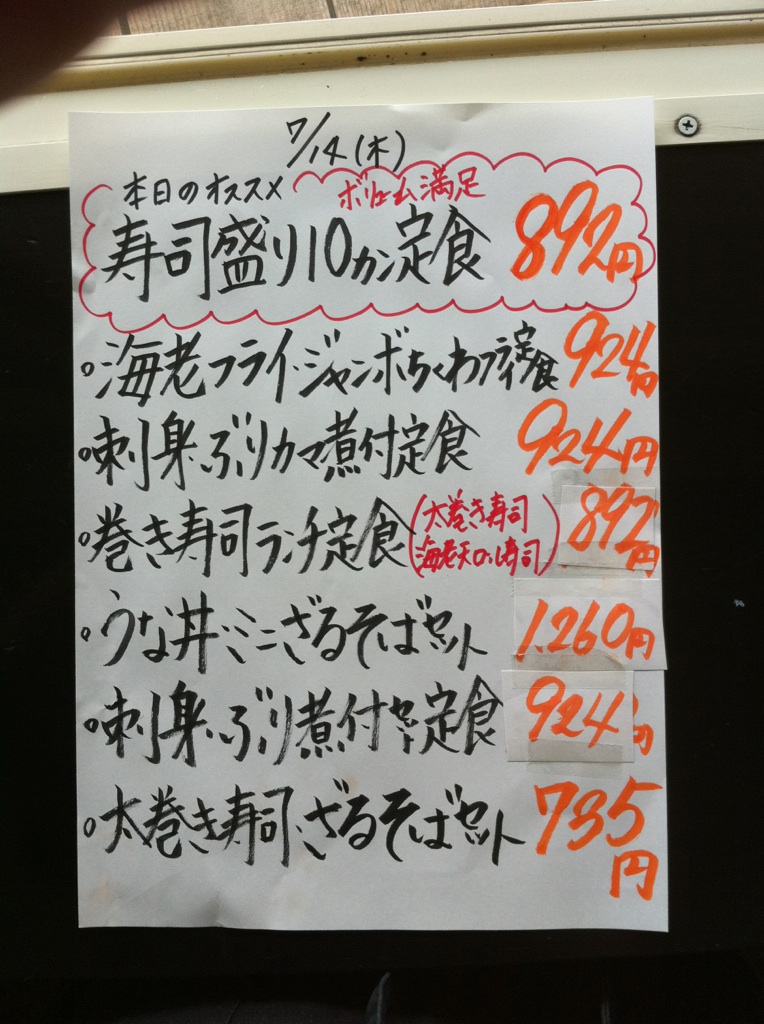 7/14(木)
本日のオススメ ボリューム満足
寿司盛り10カン定食 892円
○海老フライ・ジャンボちくわフライ定食 924円
○刺身・ぶりカマ煮付定食 924円
○巻き寿司ランチ定食(太巻き寿司 海老天のり寿司) 892円
○うな丼・ミニざるそばセット 1,260円
○刺身・ぶり煮付セット定食 924円
○太巻き寿司・ざるそばセット 735円